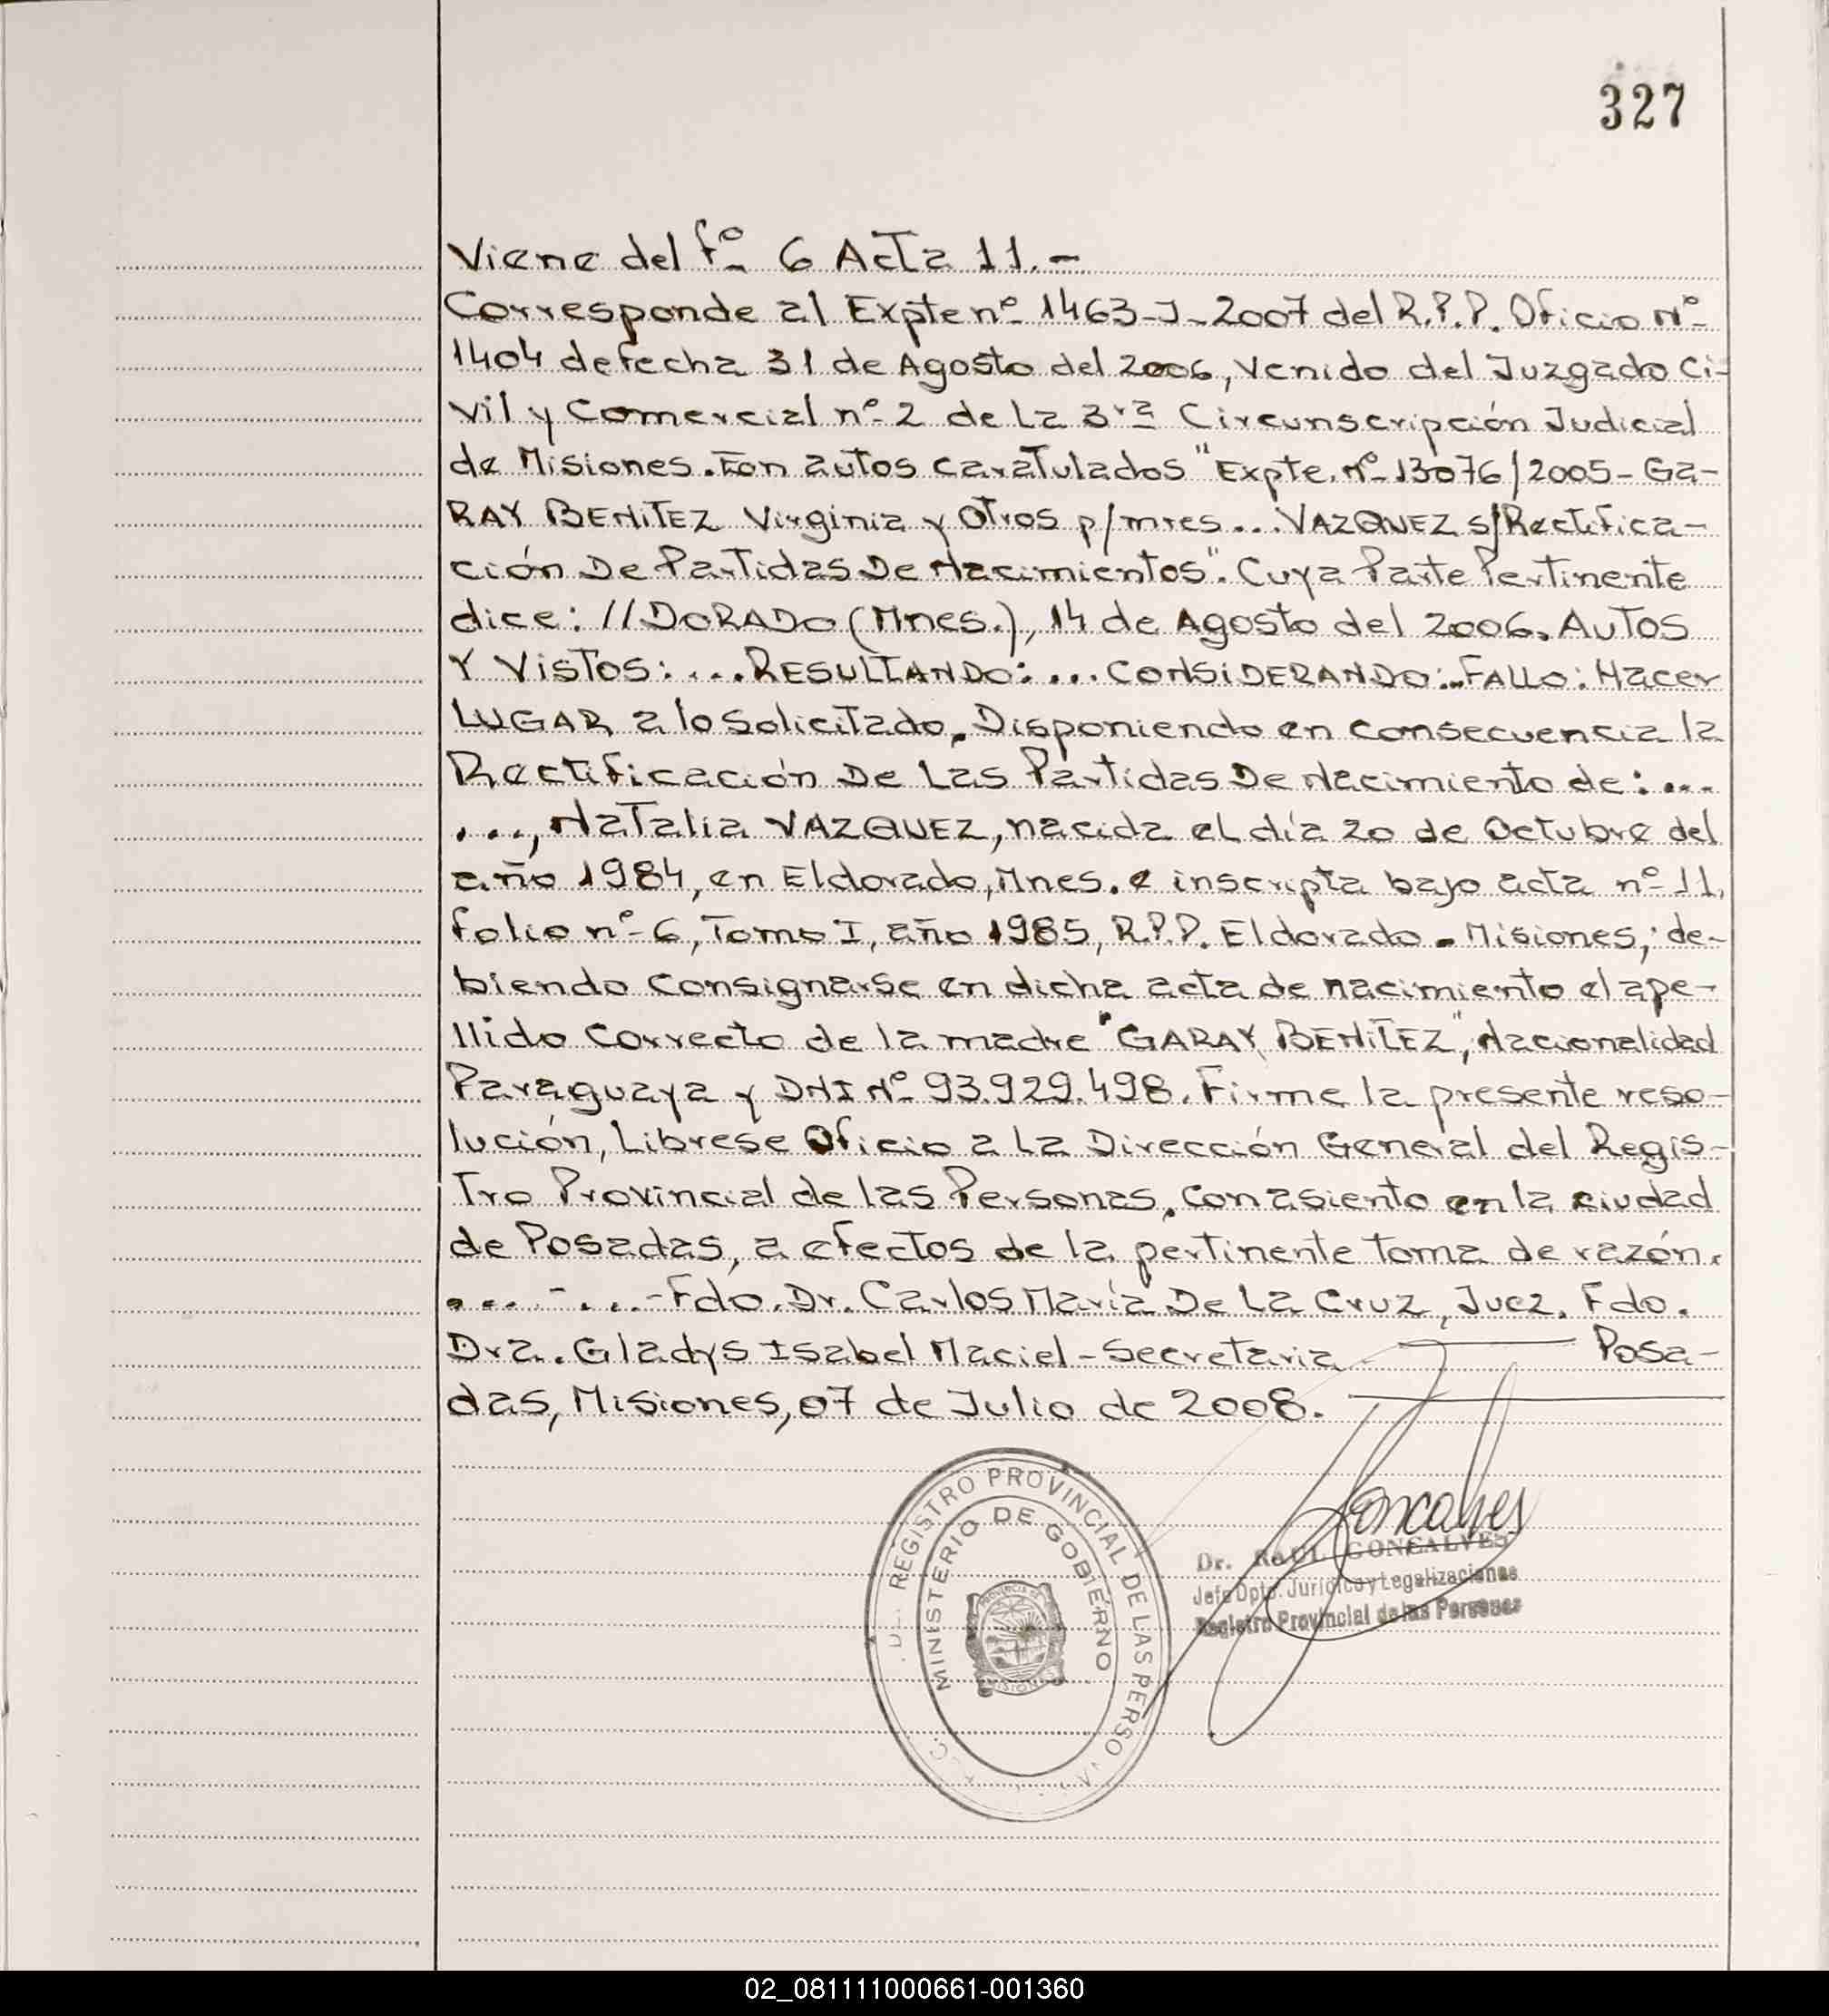 327
Viene del fº 6 Acta 11.-
Corresponde al Expte nº 1463-J-2007 del R.P.P. Oficio Nº
1404 de fecha 31 de Agosto del 2006, venido del Juzgado Ci-
vil y Comercial nº 2 de La 3ra Circunscripción Judicial
de Misiones. Eon autos caratulados "Expte. Nº 13076/2005- Ga-
RAY BENITEZ Virginia y Otros p/mres... VAZQUEZ s/Rectifica-
ción De Partidas De Nacimientos". Cuya Parte Pertinente
dice: //DORADO (Mnes.), 14 de Agosto del 2006. Autos
Y VISTOS: ....RESULTANDO: ... CONSIDERANDO:...FALLO: Hacer
LUGAR a lo Solicitado, Disponiendo en consecuencia la
Rectificación De Las Partidas De Nacimiento de: ...
..., Natalia VAZQUEZ, nacida el día 20 de Octubre del
año 1984, en Eldorado, Mnes. e inscripta bajo acta nº 11,
folio nº 6, Tomo I, año 1985, R.P.P. Eldorado - Misiones; de-
biendo Consignarse en dicha acta de nacimiento el ape-
llido Correcto de la madre "GARAY BENITEZ", Nacionalidad
Paraguaya y DNI Nº 93.929.498. Firme la presente reso-
lución, Librese Oficio a La Dirección General del Regis-
Tro Provincial de las Personas, con asiento en la ciudad
de Posadas, a efectos de la pertinente toma de razón.
....-...-Fdo. Dr. Carlos María De La Cruz, Juez. Fdo.
Dra. Gladys Isabel Maciel - Secretaria — Posa-
das, Misiones, 07 de Julio de 2008.
REGISTRO PROVINCIAL DE LAS PERSONAS
MINISTERIO DE GOBIERNO
PROVINCIA DE
MISIONES
Goncalves
Dr. RAUL GONCALVES
Jefe Dpto. Jurídico y Legalizaciones
Registro Provincial de las Personas
02_081111000661-001360